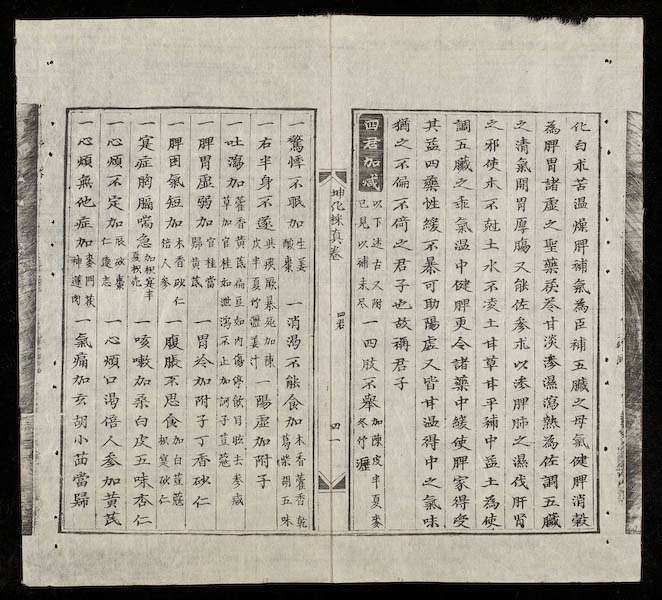 化白朮苦溫燥脾補氣為臣補五臟之母氣健脾消穀
為脾胃諸虛之聖藥茯苓甘淡滲濕瀉熱為佐調五臟
之清氣開胃厚腸又能佐參朮以滲脾肺之濕伐肝腎
之邪使木不尅土水不凌土甘草甘平補中益土為使
調五臟之乖氣溫中健脾更令諸藥中緩使脾家得受
其益四藥性緩不暴可助陽虛又皆甘溫得中之氣味
猶之不偏不倚之君子也故稱君子
四君加減 以下述古又附已見以補未尽 一四肢不舉 加陳皮半夏麥冬竹瀝
坤化採真卷 四君 四一
一驚悸不眠加 生姜酸棗 一消渴不能食加 木香藿香乾葛柴胡五味
一右半身不遂 共痰厥暴死加陳皮半夏竹瀝姜汁 一陽虛加附子
一吐瀉加 藿香黃芪扁豆如內傷停飲目眩去參減草加官桂如泄瀉不止加訶子荳蔻
一脾胃虛弱加 官桂當歸黃芪 一胃冷加附子丁香砂仁
一脾困氣短加 木香砂仁倍人參 一腹脹不思食 加白荳蔻枳寔砂仁
一寔症胸膈喘急 加枳寔半夏枳壳 一咳嗽加桑白皮五味杏仁
一心煩不定加 辰砂棗仁遠志 一心煩口渴倍人參加黃芪
一心煩無他症加 麥門茯神蓮肉 一氣痛加玄胡小茴當歸